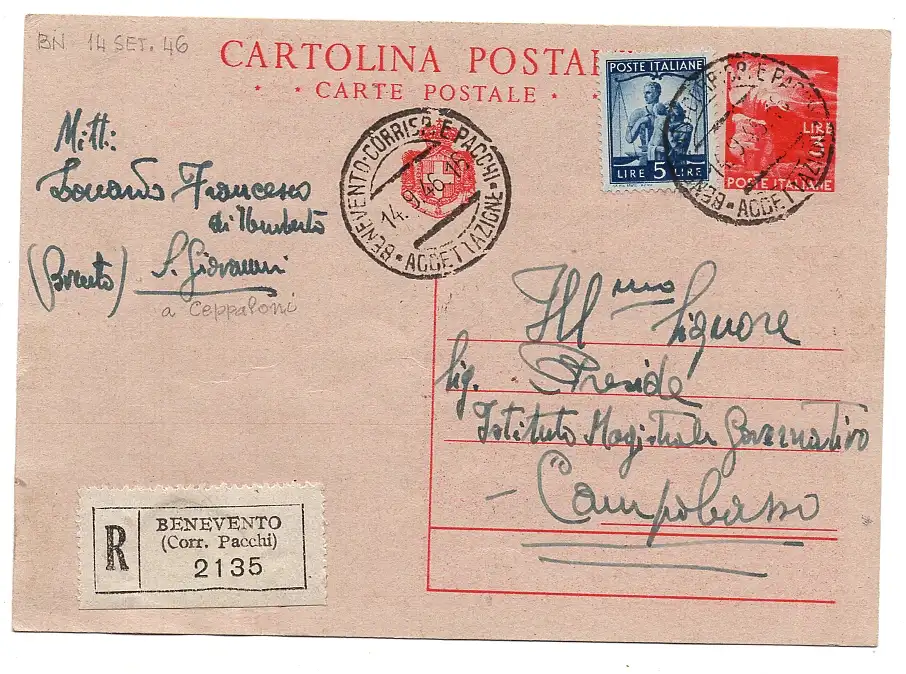 BN 14 SET. 46
CARTOLINA POSTALE
CARTE POSTALE
POSTE ITALIANE
LIRE 5 LIRE
LIRE
POSTE ITALIANE
BENEVENTO-CORRISP. E PACCHI
14.9.46.15
ACCETTAZIONE
Mitt:
Francesco
di Umberto
S. Giovanni
a Ceppaloni
Ill mo Signore
Sig. Preside
Istituto Magistrale Governativo
- Campobasso
R
BENEVENTO
(Corr. Pacchi)
2135